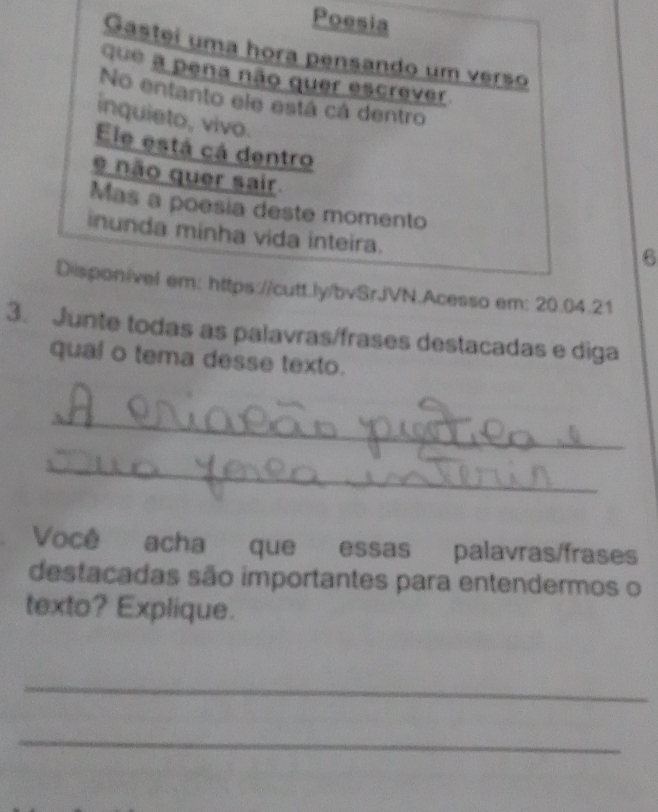 Poesia
Gastei uma hora pensando um verso
que a pena não quer escrever.
No entanto ele está cá dentro
inquieto, vivo.
Ele está cá dentro
e não quer sair.
Mas a poesia deste momento
inunda minha vida inteira.
Disponível em: https://cutt.ly/bvSrJVN.Acesso em: 20.04.21
6
3. Junte todas as palavras/frases destacadas e diga
qual o tema desse texto.
A criação poética e
sua força interin
Você acha que essas palavras/frases
destacadas são importantes para entendermos o
texto? Explique.